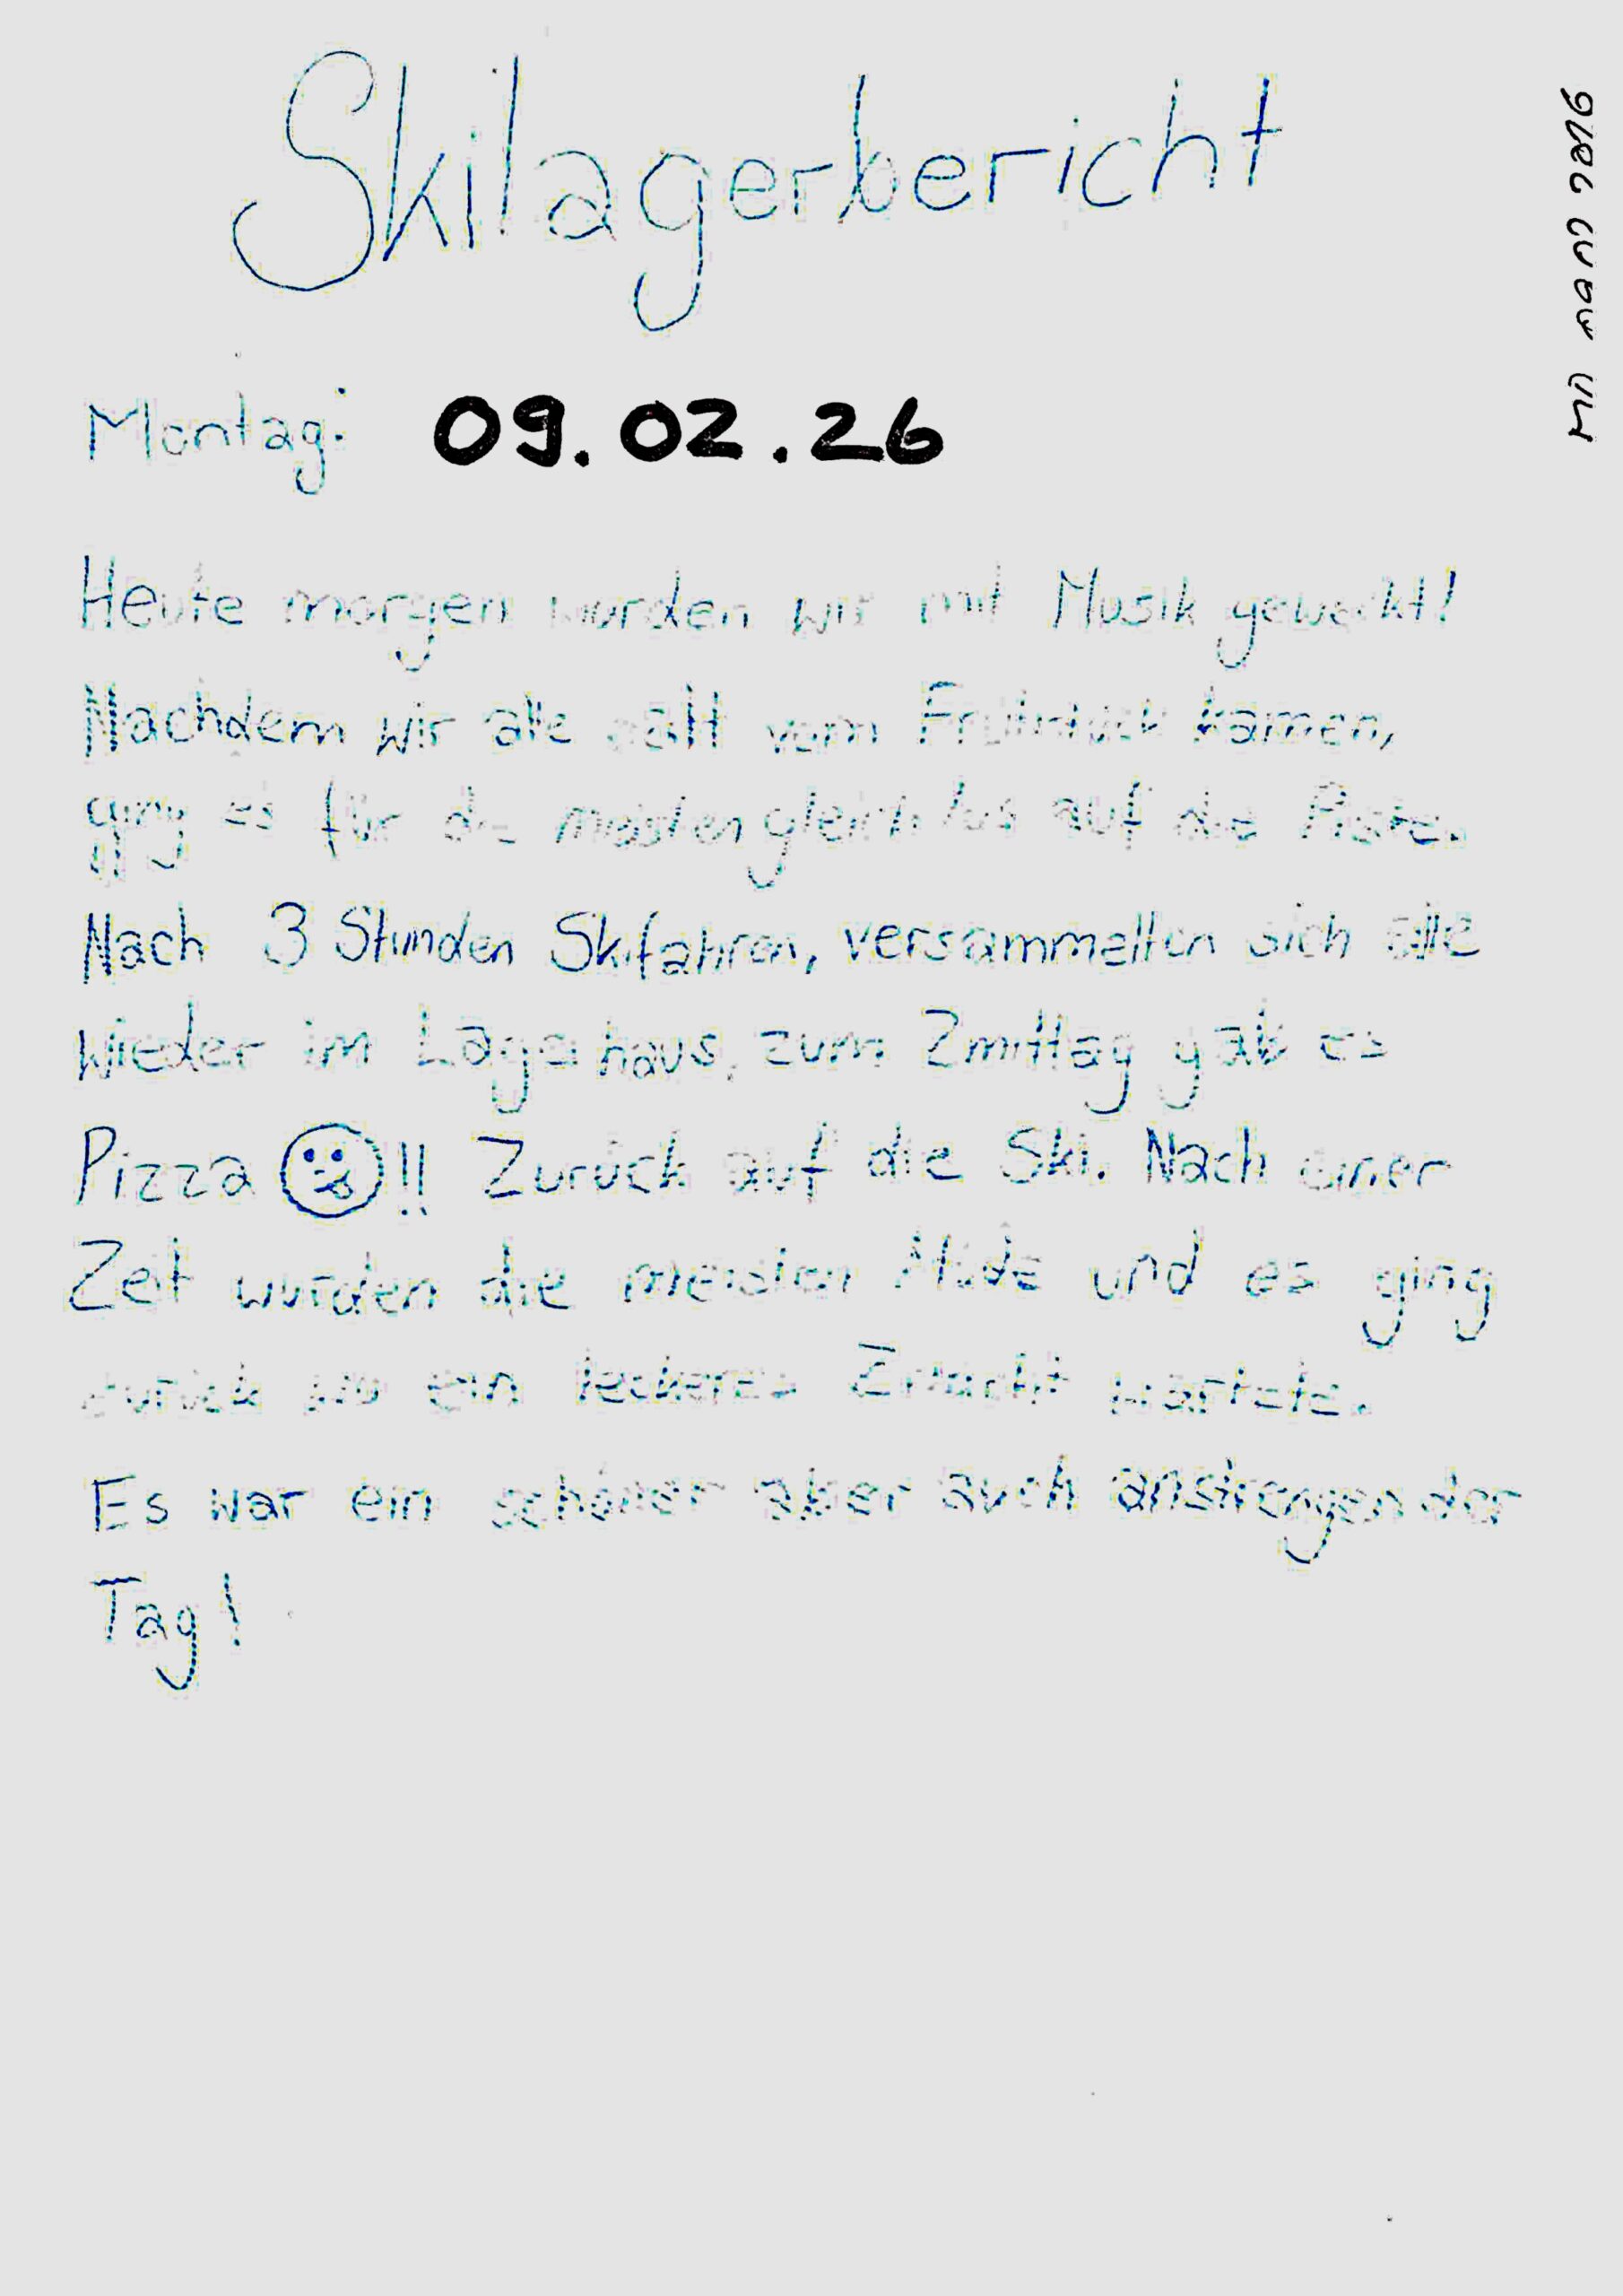 Skilagerbericht
Montag: 09.02.26
Heute morgen wurden wir mit Musik geweckt!
Nachdem wir alle satt vom Frühstück kamen,
ging es für die meisten gleich los auf die Piste.
Nach 3 Stunden Skifahren, versammelten sich alle
wieder im Lagerhaus, zum Zmittag gab es
Pizza !! Zurück auf die Ski. Nach einer
Zeit wurden die meisten Müde und es ging
zurück wo ein leckeres Znacht wartete.
Es war ein schöner aber auch anstrengender
Tag!